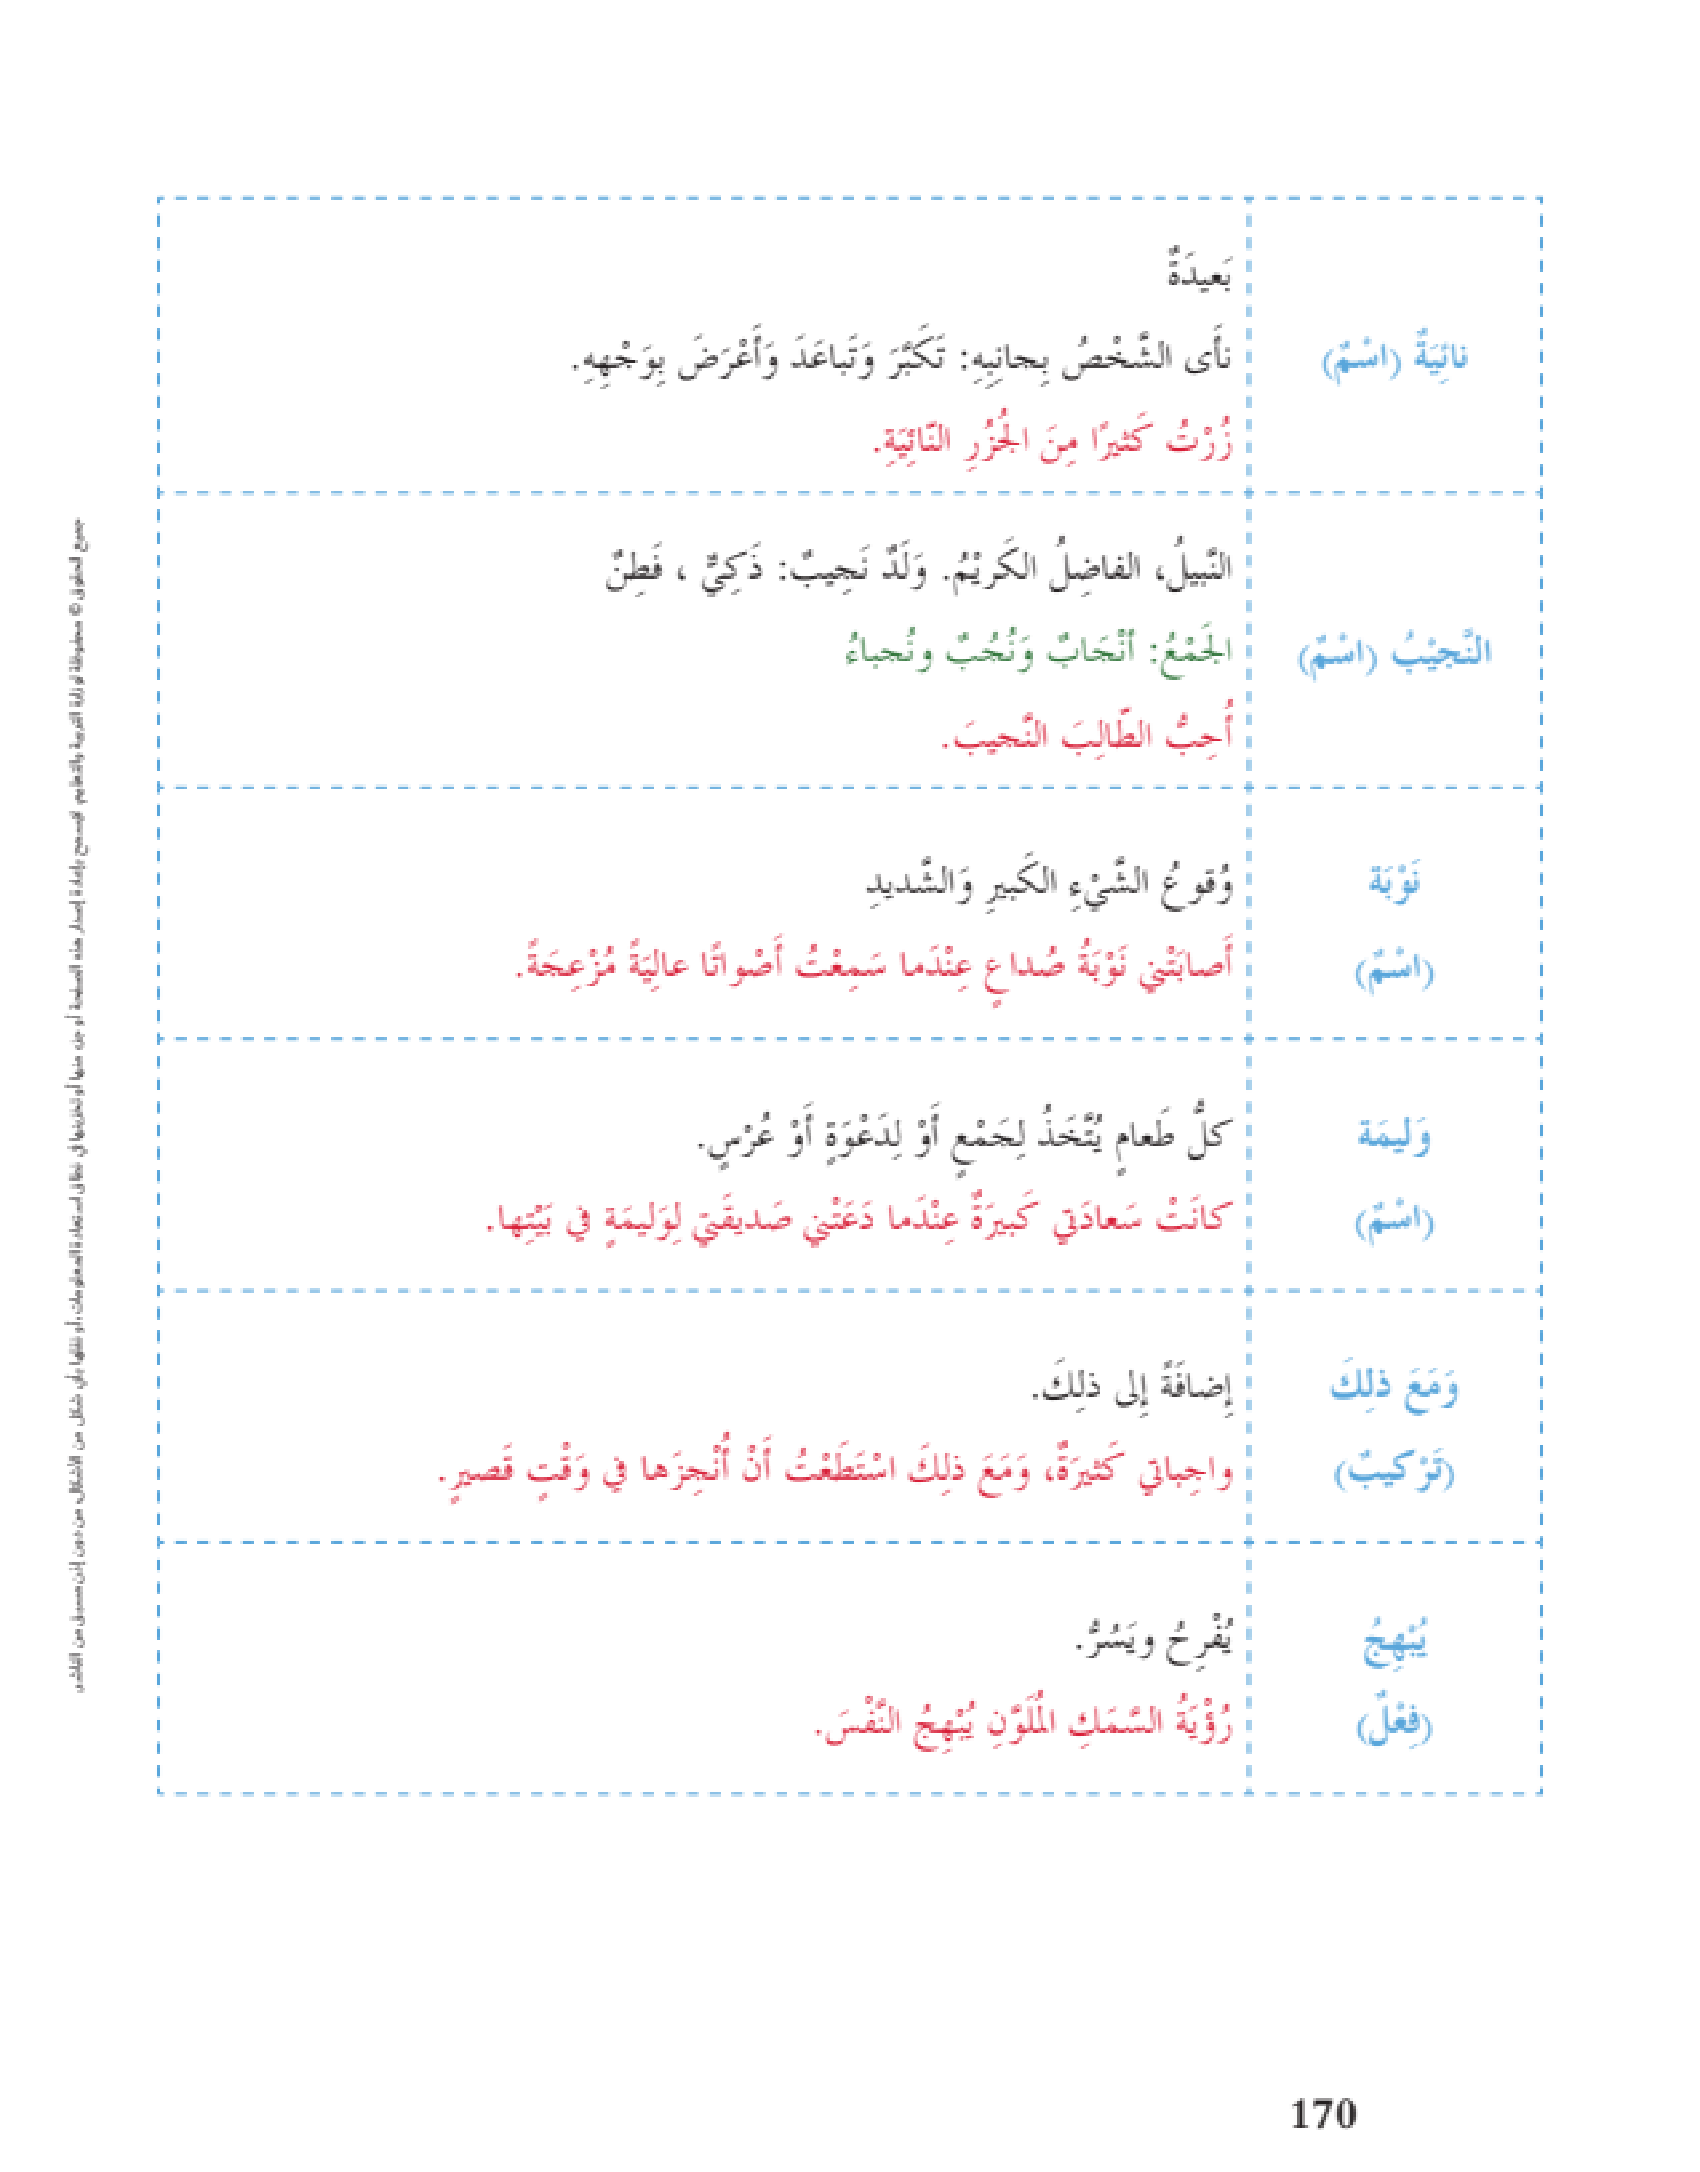 نائِيَةٌ (اسْمٌ)
بَعيدَةٌ
نأَى الشَّخْصُ بِجانِبِهِ: تَكَبَّرَ وَتَباعَدَ وَأَعْرَضَ بِوَجْهِهِ.
زُرْتُ كَثيرًا مِنَ الجُزُرِ النّائِيَةِ.
النَّجيْبُ (اسْمٌ)
النَّبيلُ، الفاضِلُ الكَريْمُ. وَلَدٌ نَجيبٌ: ذَكِيٌّ ، فَطِنٌ
الجَمْعُ: أنْجَابٌ وَنُجُبٌ ونُجباءُ
أُحِبُّ الطّالِبَ النَّجيبَ.
نَوْبَة
(اسْمٌ)
وُقوعُ الشَّيْءِ الكَبيرِ وَالشَّديدِ
أَصابَتْني نَوْبَةُ صُداعٍ عِنْدَما سَمِعْتُ أَصْواتًا عالِيَةً مُزْعِجَةً.
وَليمَة
(اسْمٌ)
كلُّ طَعامٍ يُتَّخَذُ لِجَمْعٍ أَوْ لِدَعْوَةٍ أَوْ عُرْسٍ.
كانَتْ سَعادَتي كَبيرَةً عِنْدَما دَعَتْني صَديقَتي لِوَليمَةٍ في بَيْتِها.
وَمَعَ ذلِكَ
(تَرْكيبٌ)
إِضافَةً إِلى ذلِكَ.
واجِباتي كَثيرَةٌ، وَمَعَ ذلِكَ اسْتَطَعْتُ أَنْ أُنْجِزَها في وَقْتٍ قَصيرٍ.
يُبْهِجُ
(فِعْلٌ)
يُفْرِحُ ويَسُرُّ.
رُؤْيَةُ السَّمَكِ المُلَوَّنِ يُبْهِجُ النَّفْسَ.
جميع الحقوق © محفوظة لوزارة التربية والتعليم. لايسمح بإعادة إصدار هذه الصفحة أو جزء منها أو تخزينها في نطاق استعادة المعلومات، أو نقلها بأي شكل من الأشكال من دون إذن مسبق من الناشر
170